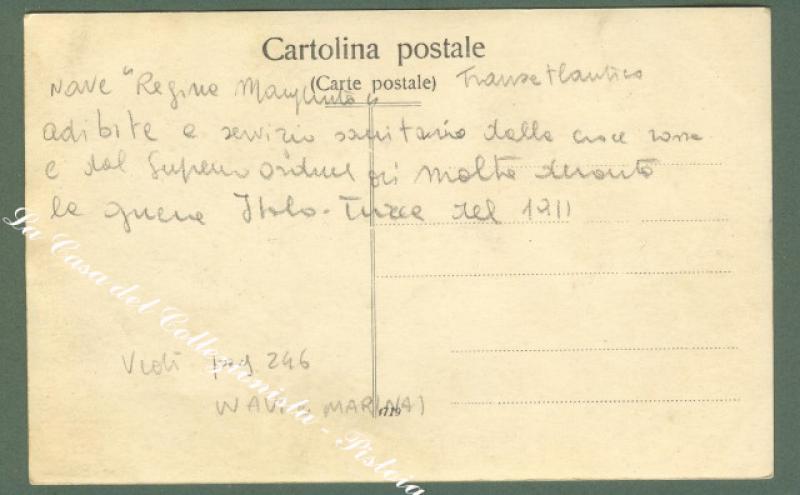 Cartolina postale
(Carte postale)
Nave "Regina Margherita" Transatlantico
adibite e servizio sanitario della croce rossa
e dal Supremo Ordine di Malta durante
la guerra Italo-Turca del 1911
Vedi pag. 246
NAVI MARINAI
1719
La Casa del Collezionista - Pistoia